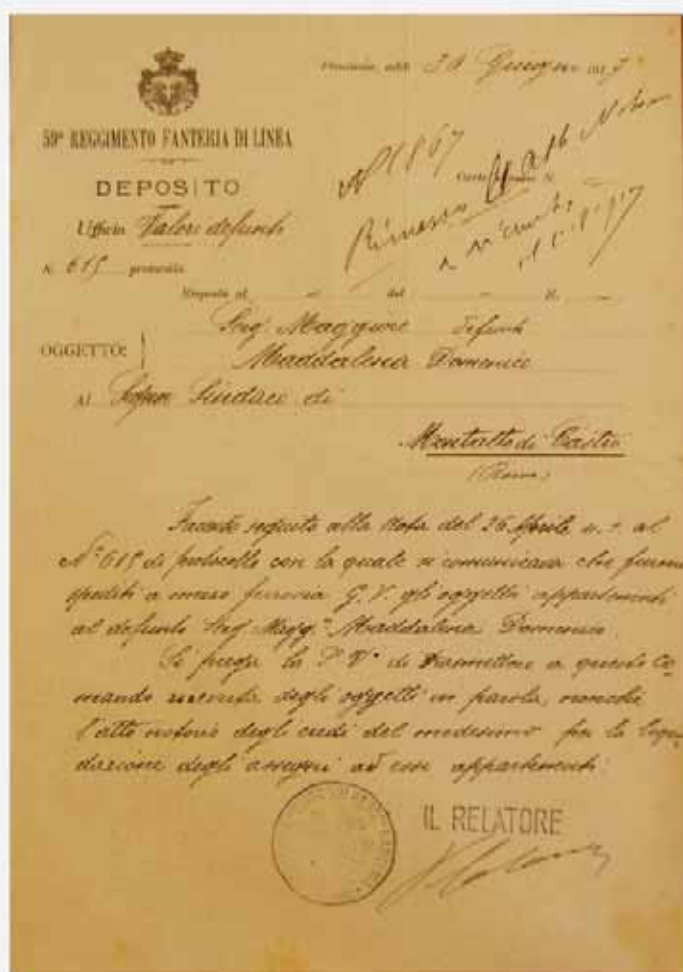 addì 30 Giugno 1917
59° REGGIMENTO FANTERIA DI LINEA
DEPOSITO
Ufficio Valori defunti
N. 615 protocollo
N° 1867
Rimesso
Risposta al del N.
OGGETTO: Serg. Maggiore defunto
Maddalena Domenico
Al Signor Sindaco di
Montalto di Castro
(Roma)
Facendo seguito alla nota del 26 Aprile u. s. al
N° 615 di protocollo con la quale si comunicava che furono
spediti a mezzo ferrovia G. V. gli oggetti appartenenti
al defunto Serg. Magg.e Maddalena Domenico.
Si prega la S. V. di trasmettere a questo Co
mando ricevuta degli oggetti in parola, nonchè
l'atto notorio degli eredi del medesimo per la liqui
dazione degli assegni ad essi appartenenti.
IL RELATORE